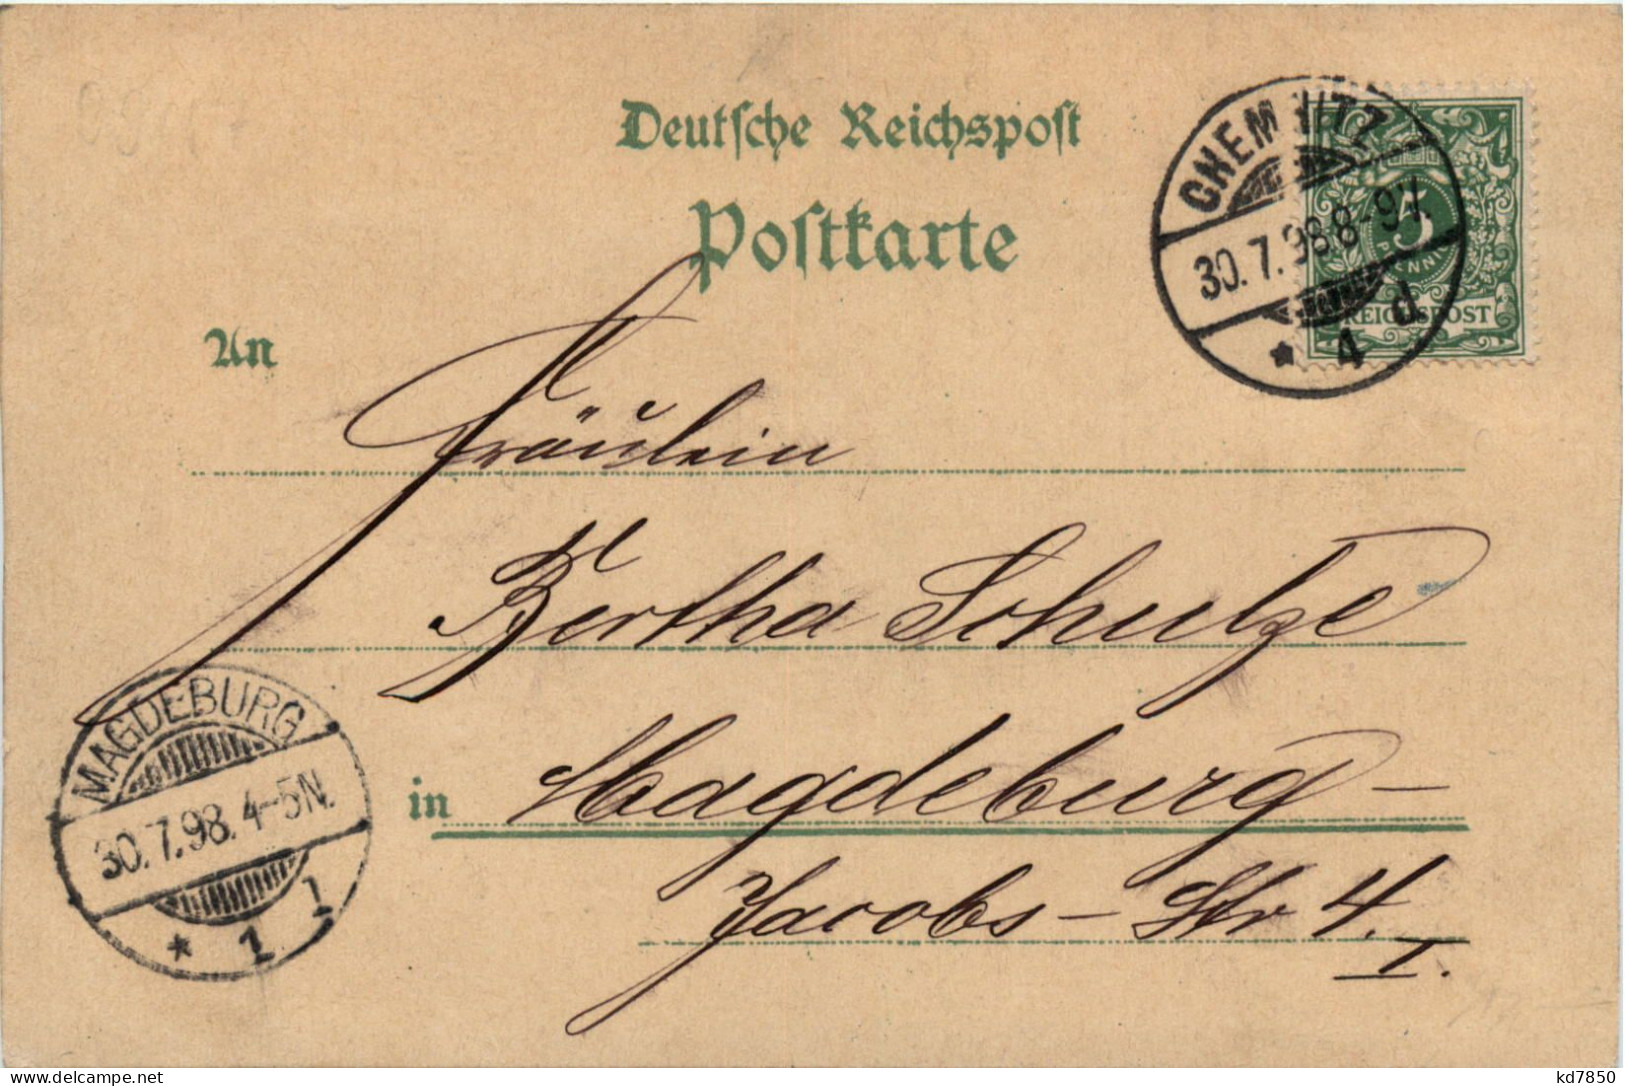 Deutsche Reichspost
Postkarte
CHEMNITZ
30.7.98 8-9V.
* 4 d
5
PFENNIG
REICHSPOST
An
Fräulein
Bertha Schulze
in Magdeburg-
Jacobs-Str 4.
I.
MAGDEBURG
30.7.98. 4-5N.
* 1 1
www.delcampe.net
kd7850